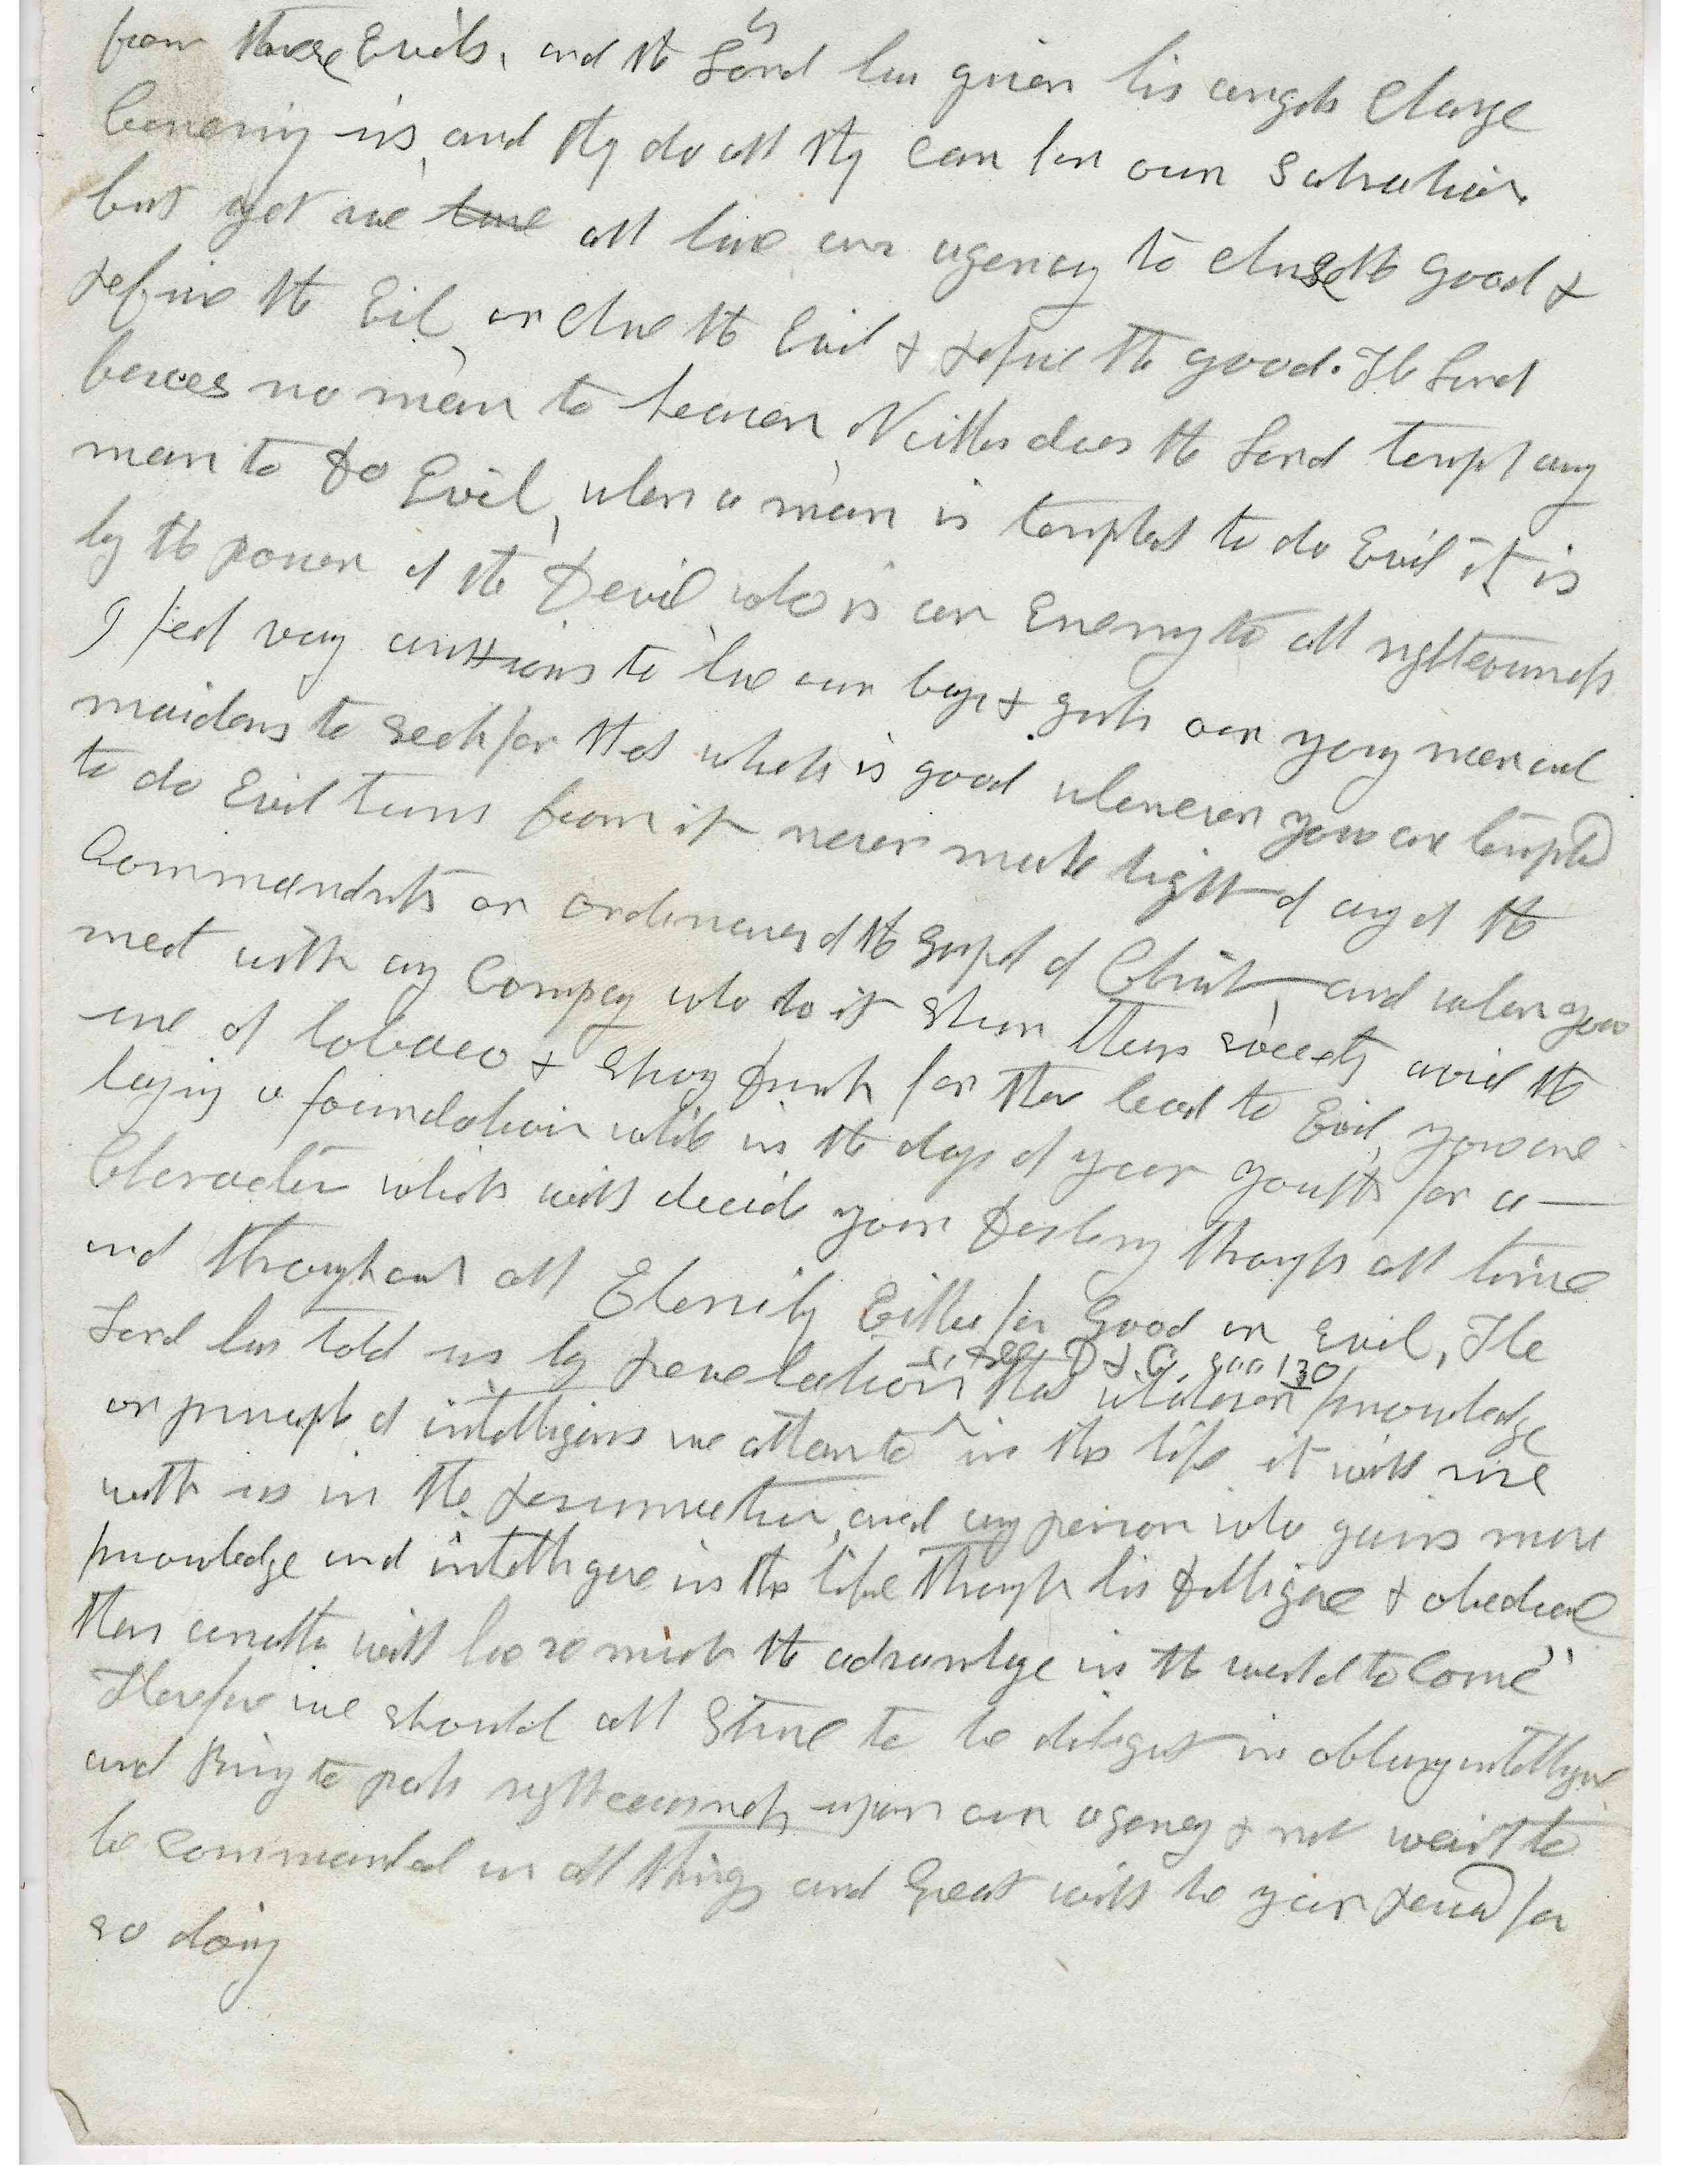 from these Evils, and the Lord has given his angels Charge
Concerning us, and they do all they can for our Salvation.
but yet we have all have our agency to chuse the good &
refuse the Evil, or chuse the Evil & refuse the good. The Lord
forces no man to heaven, Neither does the Lord tempt any
man to do Evil, when a man is tempted to do Evil it is
by the power of the Devil who is an Enemy to all righteousness
I feel very anxious to have our boys & girls our young men and
maidens to seek for that which is good whenever you are tempted
to do Evil turn from it never make light of any of the
Commandmts or ordinances of the gospel of Christ, and when you
meet with any Company who do it Shun their society avoid the
use of tobacco & Strong drink for they lead to Evil, you are
laying a foundation while in the days of your youth for a
Character which will decide your Destiny through all time
and throughout all Eternity Either for Good or Evil, The
see D & C. sec 130
Lord has told us by revelation that whatever knowledge
or principle of intelligence we attain to in this life it will rise
with us in the resurrection, and any person who gains more
knowledge and intelligence in this life through his dilligence & obedience
than another will have so much the advantage in the world to Come"
Therefore we should all Strive to be diligent in obtaining intelligence
and bring to pass righteousness upon our agency & not wait to
be commanded in all things and Great will be your reward for
so doing